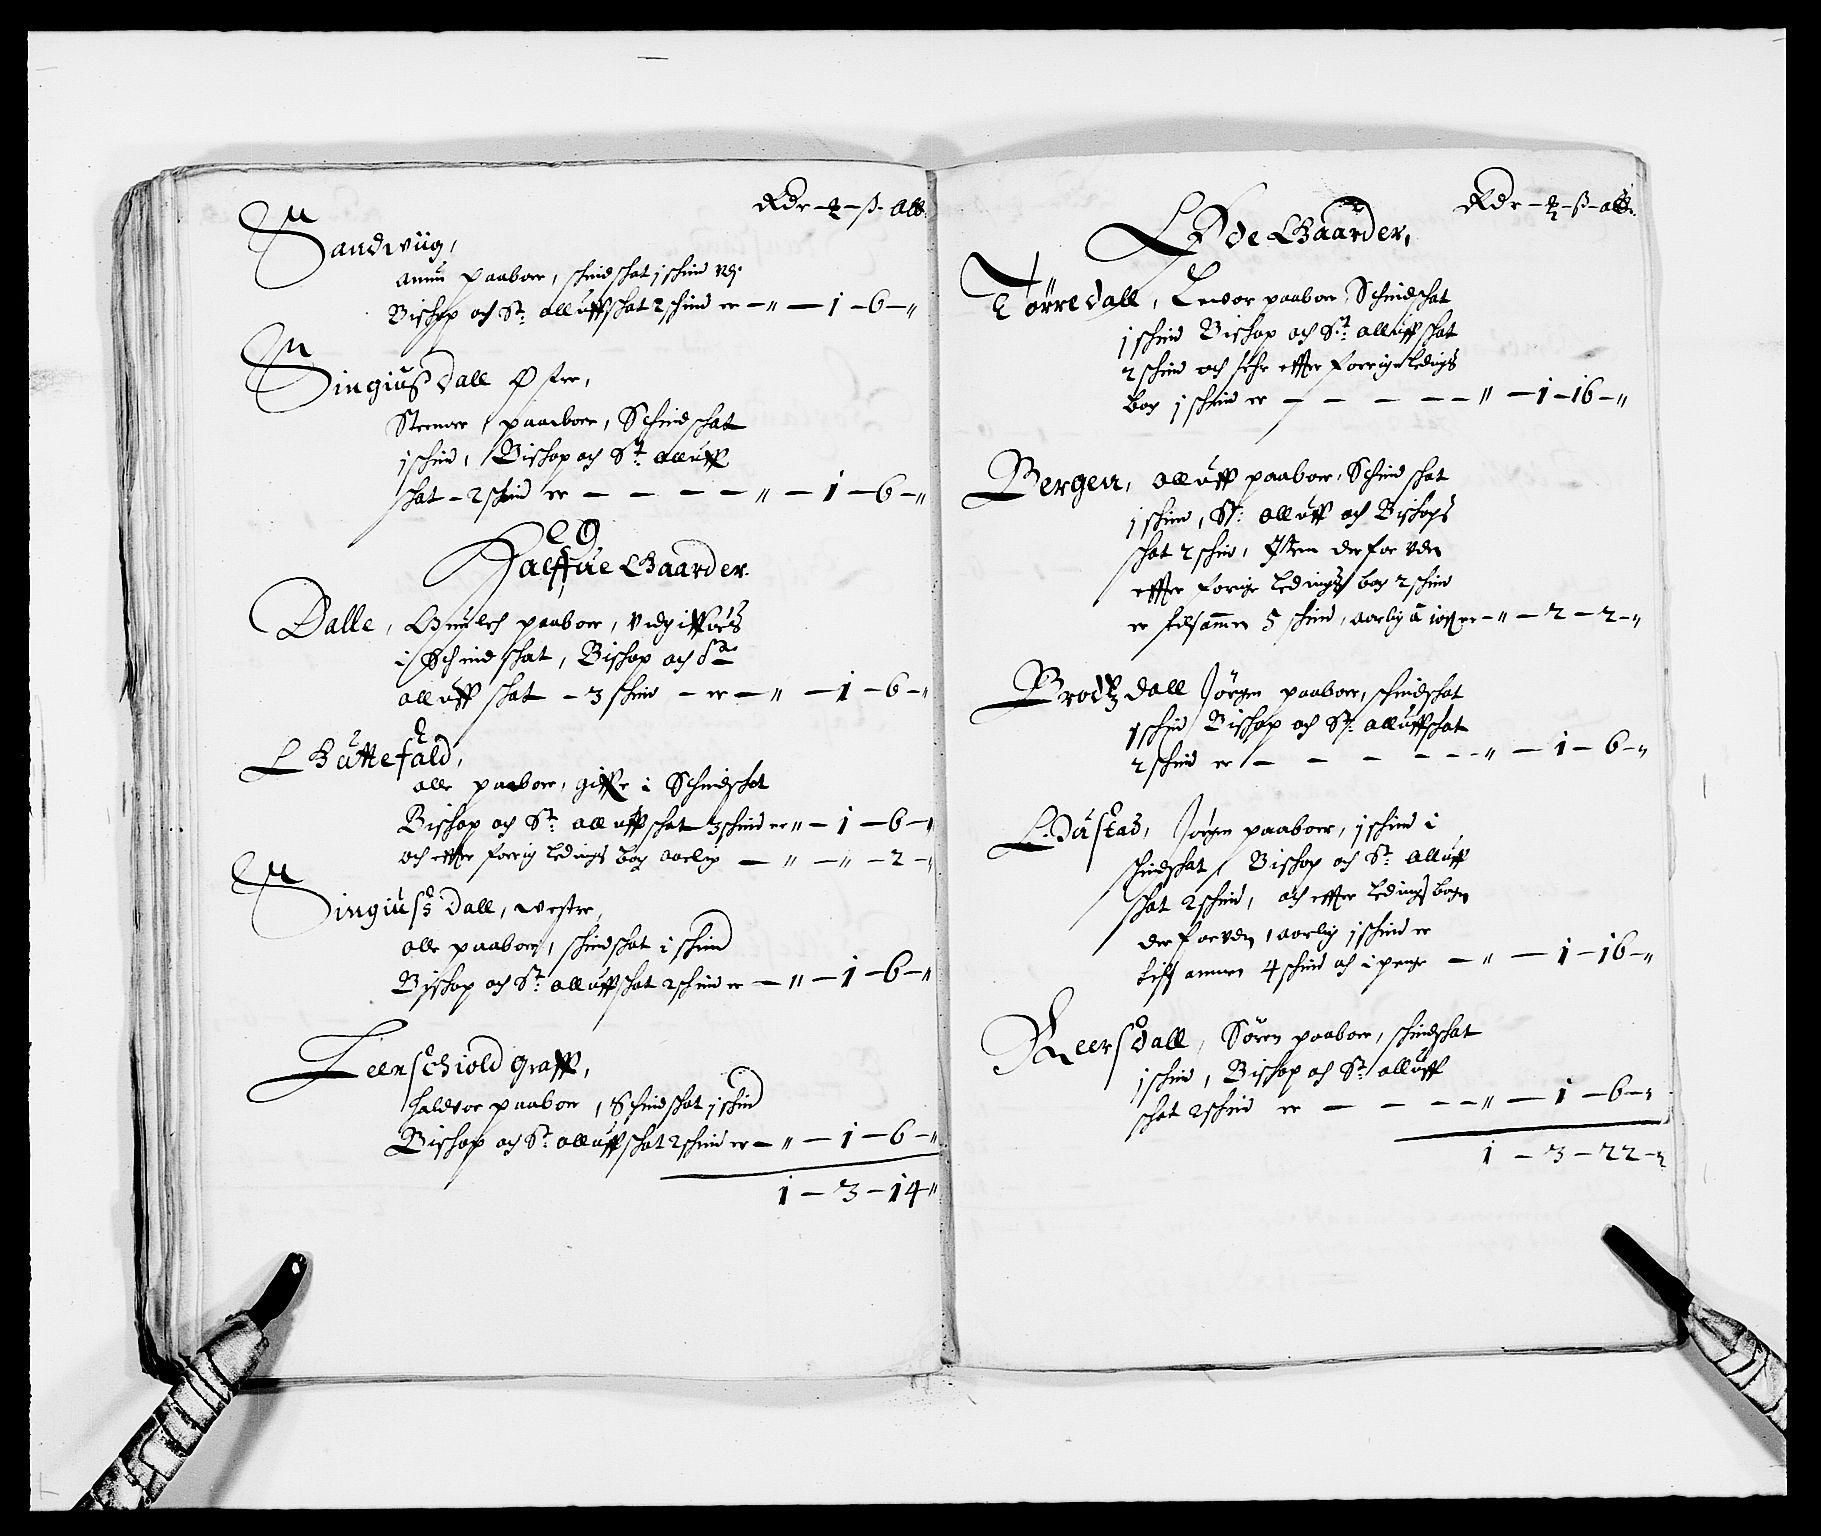 Rdr – ꝶ – ß – alb:
Sandwiig,
Amun paaboer, schind schat j schind vdj
Bischop och St: Alluffschat 2 schind er – " – 1 – 6 – "
Singiusdall Øster,
Stemoer paaboer, Schind schat
j schind, Bischop och St: Alluff
schat – 2 schind er – – – – " – 1 – 6 – "
Halffue Gaarder
Dalle, Gunlech paaboer, vdgiffues
i Schind schat, Bischop och St:
Alluff schat – 3 schind – er – " – 1 – 6 – "
Guttefald,
Olle paaboer, giffer i Schindschat
Bischop och St: Alluffschat 3 schind er " – 1 – 6 – "
och effter forrig ledings bog aarlig – " – " – 2 – "
Singiusdall, wester,
Olle paaboer, schindschat i schind
Bischop och St: Alluffschat 2 schind er – " – 1 – 6 – "
Leerschiold graff,
Haldvor paaboer, Schindschat j schind
Bischop och St: Alluffschat 2 schind er – " – 1 – 6 – "
1 – 3 – 14 "
Rdr – ꝶ – ß – alb:
Øde Gaarder,
Törredall, Lewor paaboer, Schindschat
j schind Bischop och St: Alluff schat
2 schind och effter forrige ledings
bog j schind er – – – – – " – 1 – 16 – "
Bergen, Alluff paaboer, Schind schat
j schind, St: Alluff och Bischops
schat 2 schind, Item derforvden
effter forige ledings bog 2 schind
er tilsammen 5 schind, aarlig a 10 ß er – " – 2 – 2 – "
Brodtzdall Jörgen paaboer, schindschat
1 schind Bischop och St: Alluffschat
2 schind er – – – – – – " – 1 – 6 – "
Dustad, Jörgen paaboer, j schind i
schindschat, Bischop och St: Alluff
schat 2 schind, och effter ledings bogen
derforvden, aarlig j schind er
tilsammen 4 schind och i penge – " – 1 – 16 – "
Reersdall, Sören paaboer, schindschat
j schind, Bischop och St: Alluff
schat 2 schind er – – – – " – 1 – 6 – "
1 – 3 – 22 – "